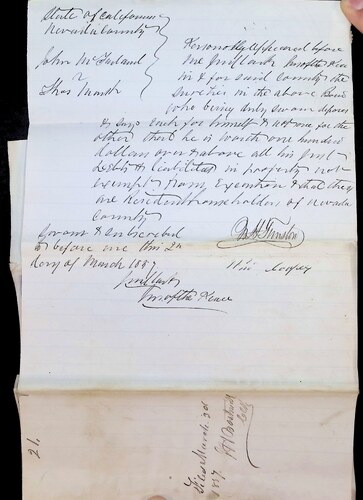 State of California
Nevada County
John McFarland
v
Thos Marsh
Personally appeared before
me Justice of the Peace
in & for said County the
sureties in the above Bond
who being duly sworn deposes
& says each for himself & not one for the
other that he is worth one hundred
dollars over & above all his just
debts & liabilities in property not
exempt from Execution & that they
are Resident householders of Nevada
County
Sworn & subscribed
to before me this 2d
day of March 1857
Wm Cooper
Jus of the Peace
Filed March 3d
1857
21